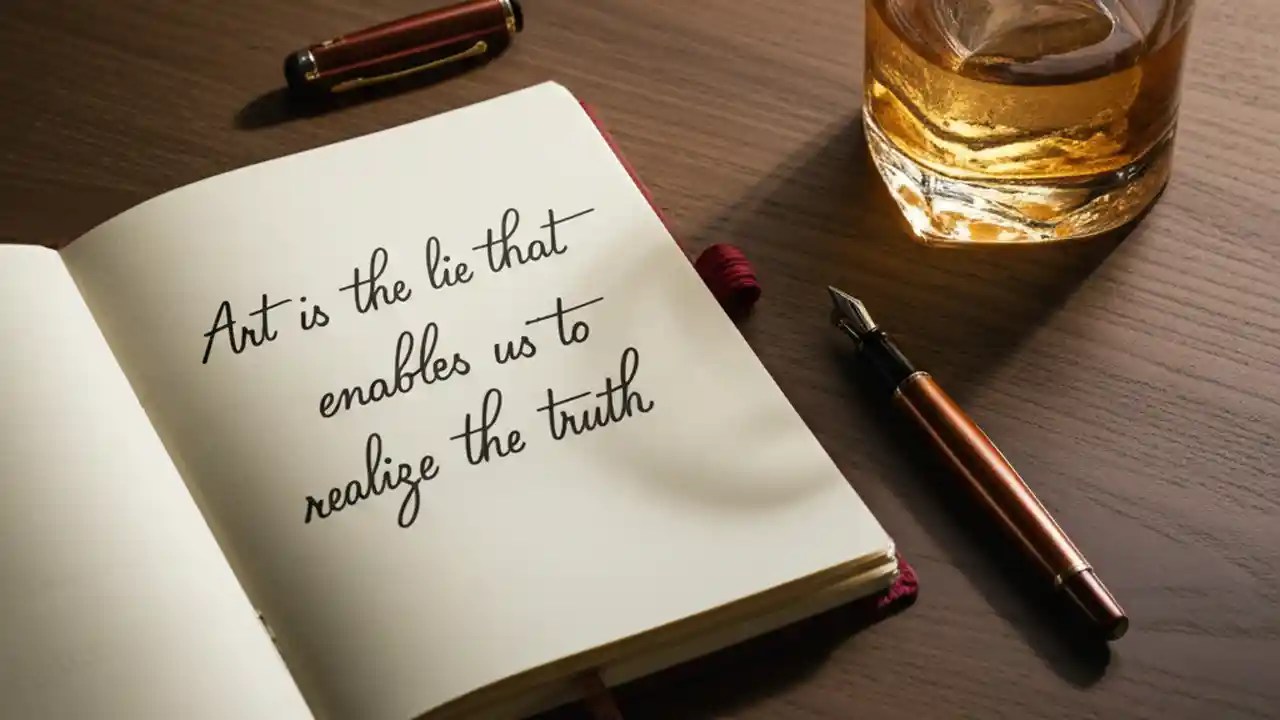 Art is the lie that
enables us to
realize the truth